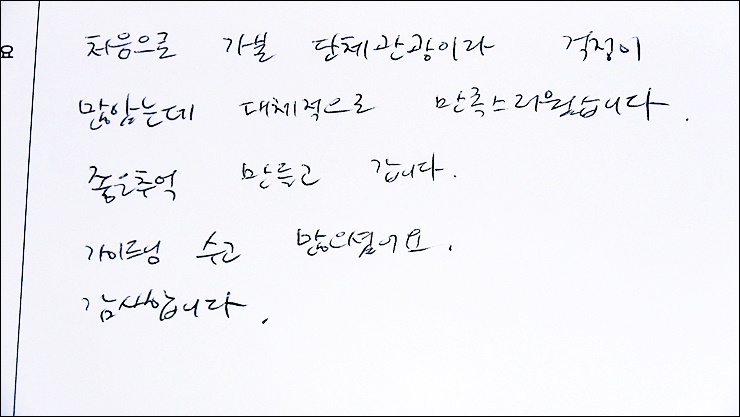 요
처음으로 가본 단체관광이라 걱정이
많았는데 대체적으로 만족스러웠습니다.
좋은추억 만들고 갑니다.
가이드님 수고 많으셨어요.
감사합니다.